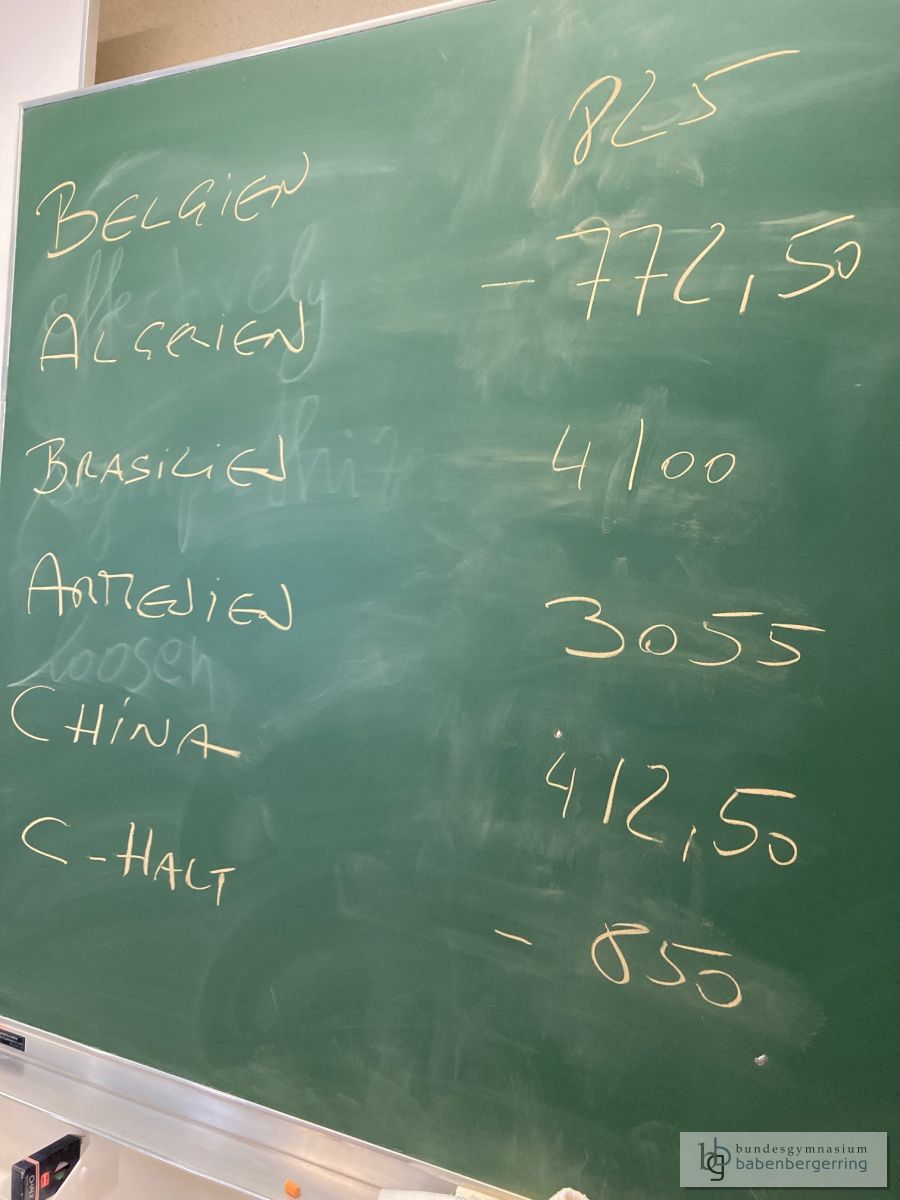 BELGIEN 825
ALGERIEN - 772,50
BRASILIEN 4100
ARMENIEN 3055
CHINA 412,50
C-HALT - 850
effectively
loosen
bundesgymnasium
babenbergerring